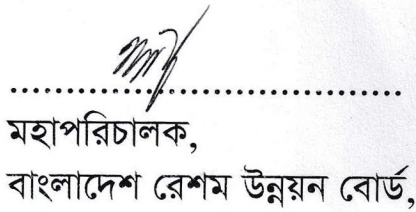 মহাপরিচালক,
বাংলাদেশ রেশম উন্নয়ন বোর্ড,